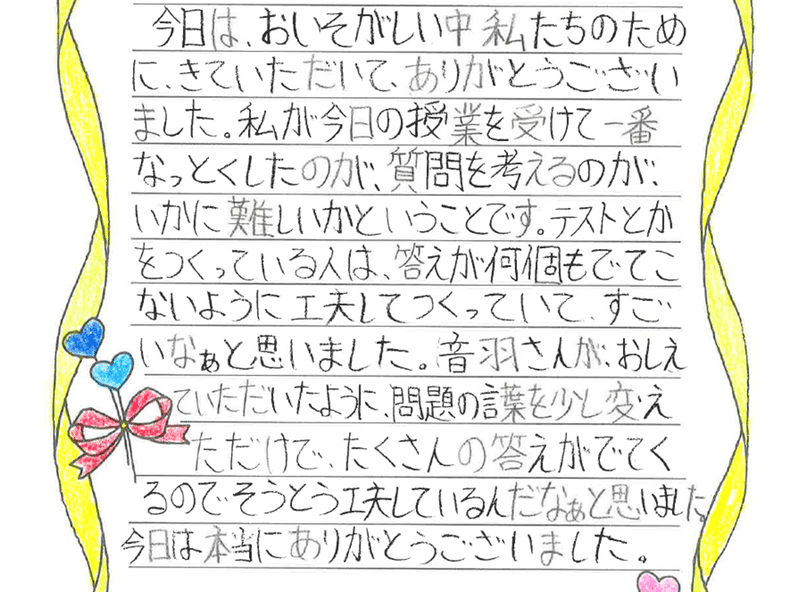 今日は、おいそがしい中私たちのため
に、きていただいて、ありがとうござい
ました。私が今日の授業を受けて一番
なっとくしたのが、質問を考えるのが、
いかに難しいかということです。テストとか
をつくっている人は、答えが何個もでてこ
ないように工夫してつくっていて、すご
いなぁと思いました。音羽さんが、おしえ
ていただいたように、問題の言葉を少し変え
ただけで、たくさんの答えがでてく
るのでそうとう工夫しているんだなぁと思いました。
今日は本当にありがとうございました。